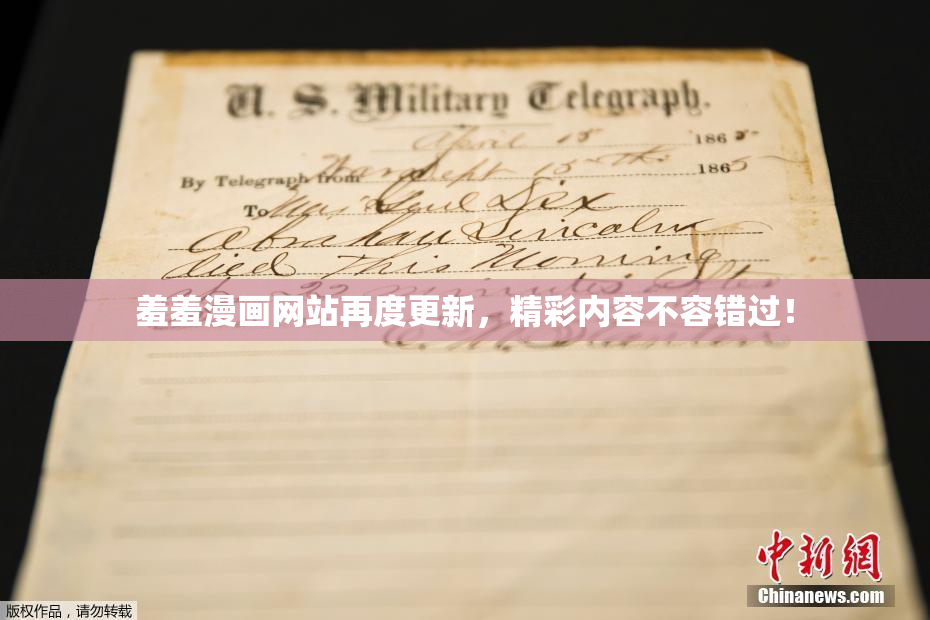 U. S. Military Telegraph.
April 15 1865
By Telegraph from War Dept 15th 1865
To Maj Genl Dix
Abraham Lincoln
died This Morning
at 22 minutes after
羞羞漫画网站再度更新，精彩内容不容错过！
E. M. Stanton
中新网
Chinanews.com
版权作品，请勿转载